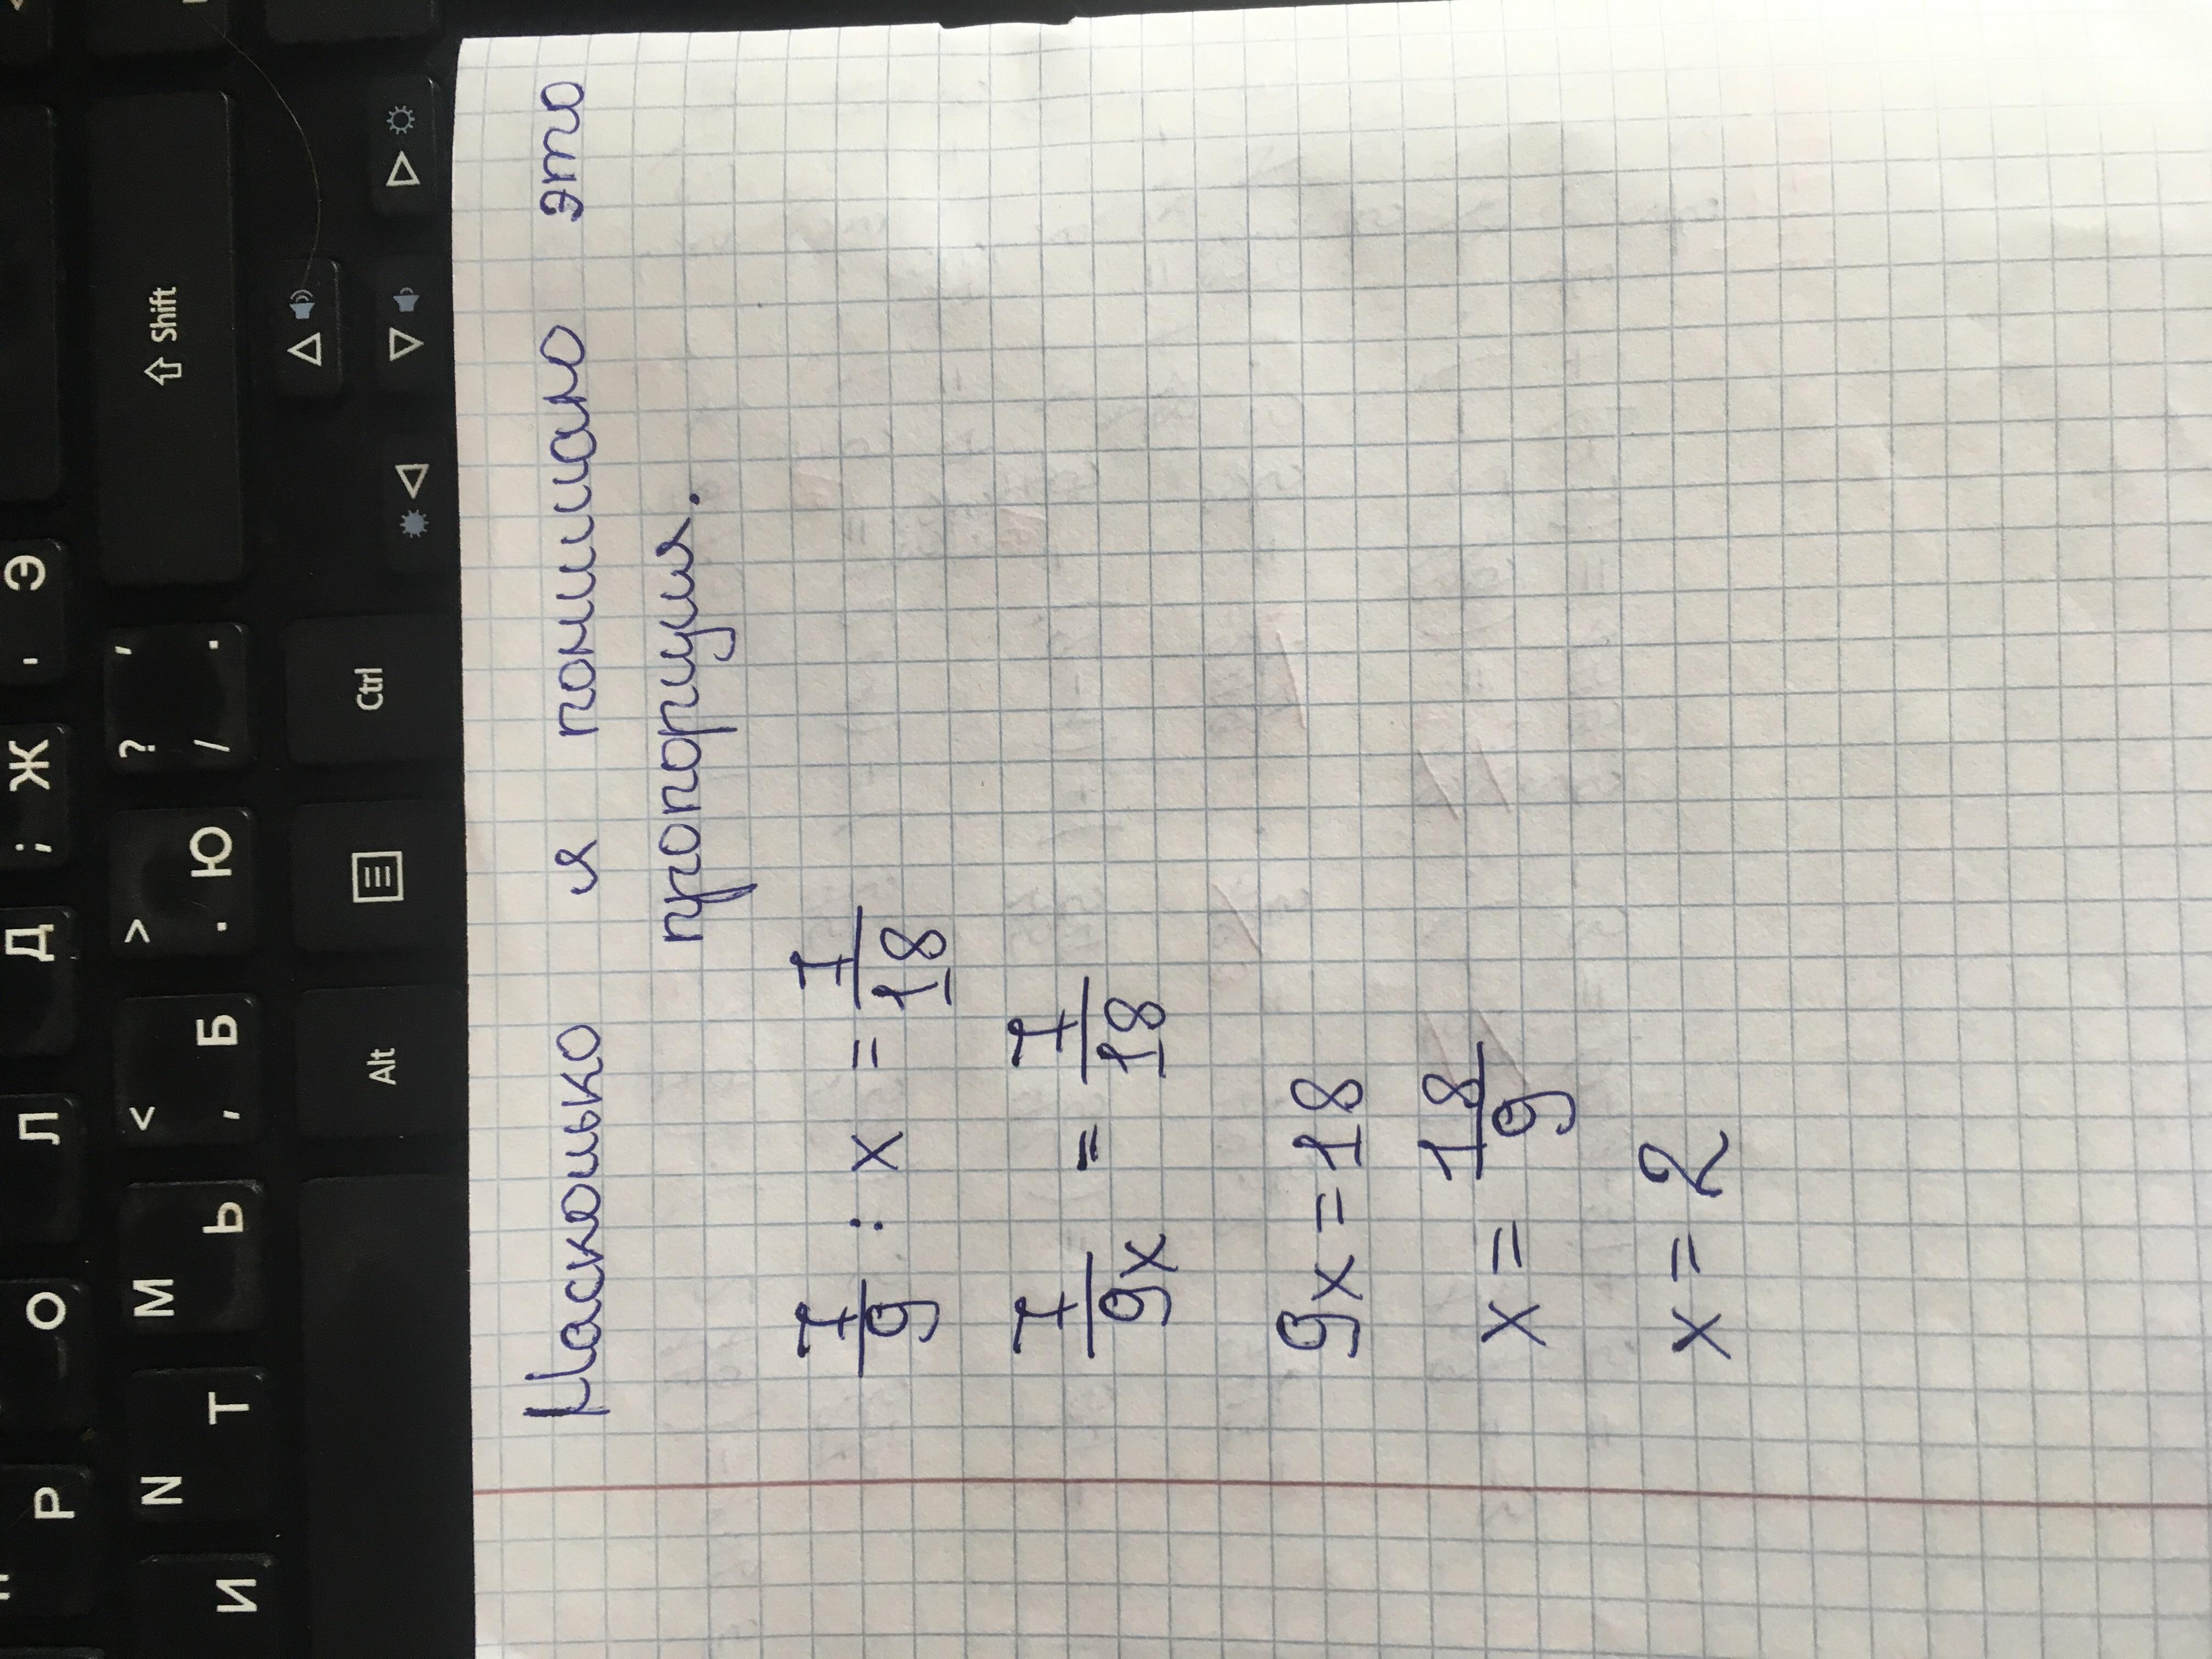 Насколько я понимаю это
пропорция.
1/9 : x = 1/18
1/9x = 1/18
9x = 18
x = 18/9
x = 2
Shift
Э
Ж
;
?
/
,
.
Д
>
Ю
.
Л
<
Б
,
Ctrl
Alt
О
М
Ь
Р
N
Т
И